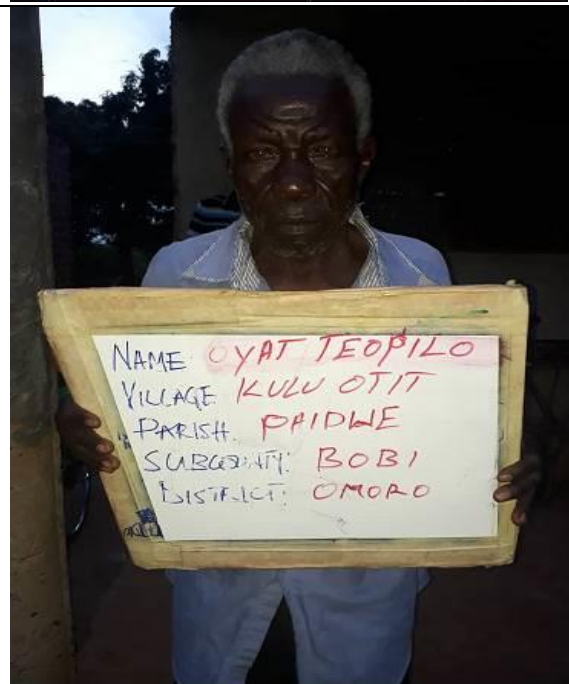 NAME: OYAT TEOPILO
VILLAGE KULU OTIT
PARISH. PAIDWE
SUBCOUNTY: BOBI
DISTRICT: OMORO